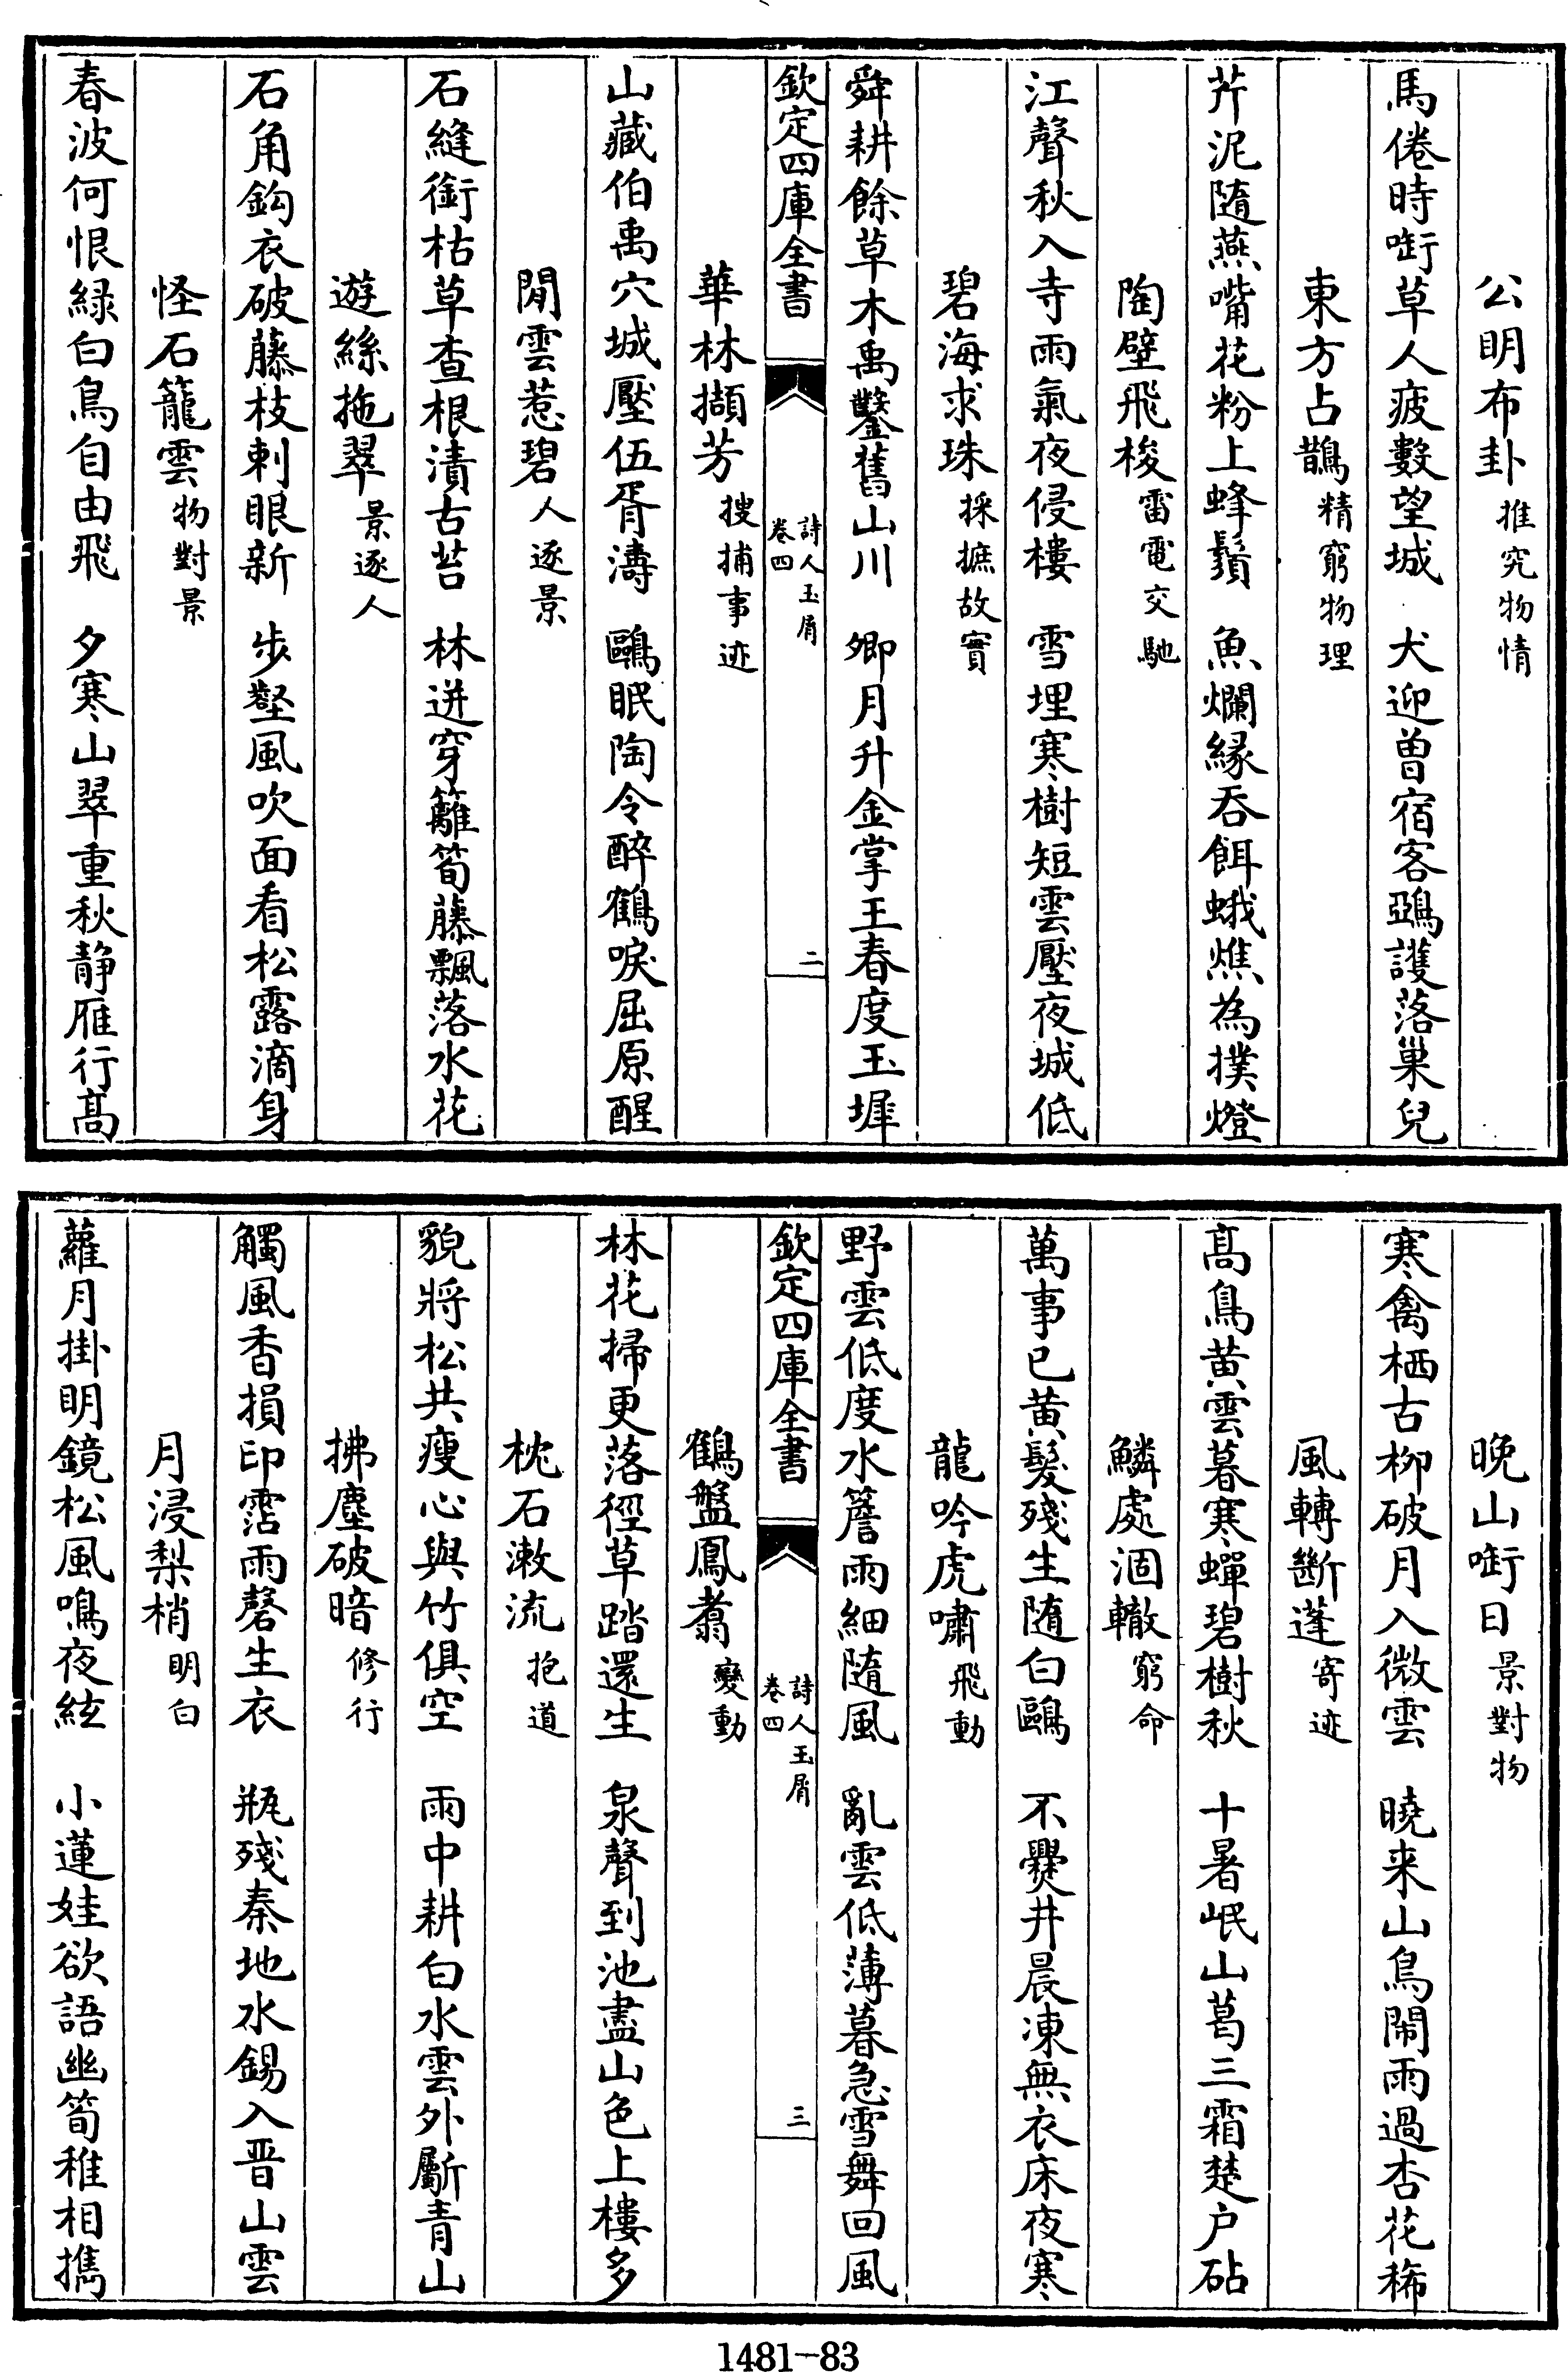 公明布卦推究物情
馬倦時㗸草人疲數望城　犬迎曽宿客鵶護落巢兒
東方占鵲精窮物理
芹泥隨燕嘴花粉上蜂鬚　魚爛緣吞餌蛾燋為撲燈
陶壁飛梭雷電交馳
江聲秋入寺雨氣夜侵樓　雪埋寒樹短雲壓夜城低
碧海求珠採摭故實
舜耕餘草木禹鑿舊山川　卿月升金掌王春度玉墀
欽定四庫全書
詩人玉屑
卷四
二
華林擷芳搜捕事迹
山藏伯禹穴城壓伍胥濤　鷗眠陶令醉鶴唳屈原醒
閒雲惹碧人逐景
石縫銜枯草查根漬古苔　林迸穿籬筍藤飄落水花
遊絲拖翠景逐人
石角鈎衣破藤枝刺眼新　步壑風吹面看松露滴身
怪石籠雲物對景
春波何恨綠白鳥自由飛　夕寒山翠重秋静雁行髙
晚山㗸日景對物
寒禽栖古柳破月入微雲　曉来山鳥鬧雨過杏花稀
風轉斷蓬寄迹
髙鳥黄雲暮寒蟬碧樹秋　十暑岷山葛三霜楚户砧
鱗處涸轍窮命
萬事已黄髮殘生随白鷗　不爨井晨凍無衣床夜寒
龍吟虎嘯飛動
野雲低度水簷雨細隨風　亂雲低薄暮急雪舞回風
欽定四庫全書
詩人玉屑
卷四
三
鶴盤鳳翥變動
林花掃更落徑草踏還生　泉聲到池盡山色上樓多
枕石漱流抱道
貌將松共瘦心與竹俱空　雨中耕白水雲外斸青山
拂塵破暗修行
觸風香損印霑雨磬生衣　瓶殘秦地水錫入晋山雲
月浸梨梢明白
蘿月掛明鏡松風鳴夜絃　小蓮娃欲語幽筍稚相擕
1481-83